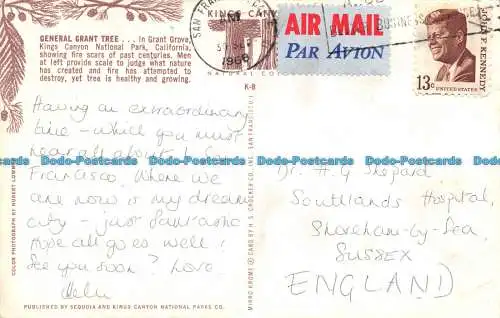 GENERAL GRANT TREE . . . In Grant Grove,
Kings Canyon National Park, California,
showing fire scars of past centuries. Men
at left provide scale to judge what nature
has created and fire has attempted to
destroy, yet tree is healthy and growing.
KINGS CANYON
NATURAL
K-8
SAN FRANCISCO
PM
SEP
1968
AIR MAIL
PAR AVION
BUSINESS
JOHN F. KENNEDY
13c
UNITED STATES
Having an extraordinary
time – which you must
hear all about! San
Francisco, where we
are now is my dream
city – just fantastic
Hope all goes well!
See you soon? Love
Helen
Dr. H. G Shepard
Southlands Hospital,
Shoreham-by-Sea,
SUSSEX
ENGLAND
COLOR PHOTOGRAPH BY HUBERT
MIRRO-KROME ® CARD BY H. S. CROCKER CO., INC. SAN FRANCISCO
PUBLISHED BY SEQUOIA AND KINGS CANYON NATIONAL PARKS CO.
Postcards-Shop.com Postcards-Shop.com Postcards-Shop.com
Sedulo Ltd Sedulo Ltd Sedulo Ltd